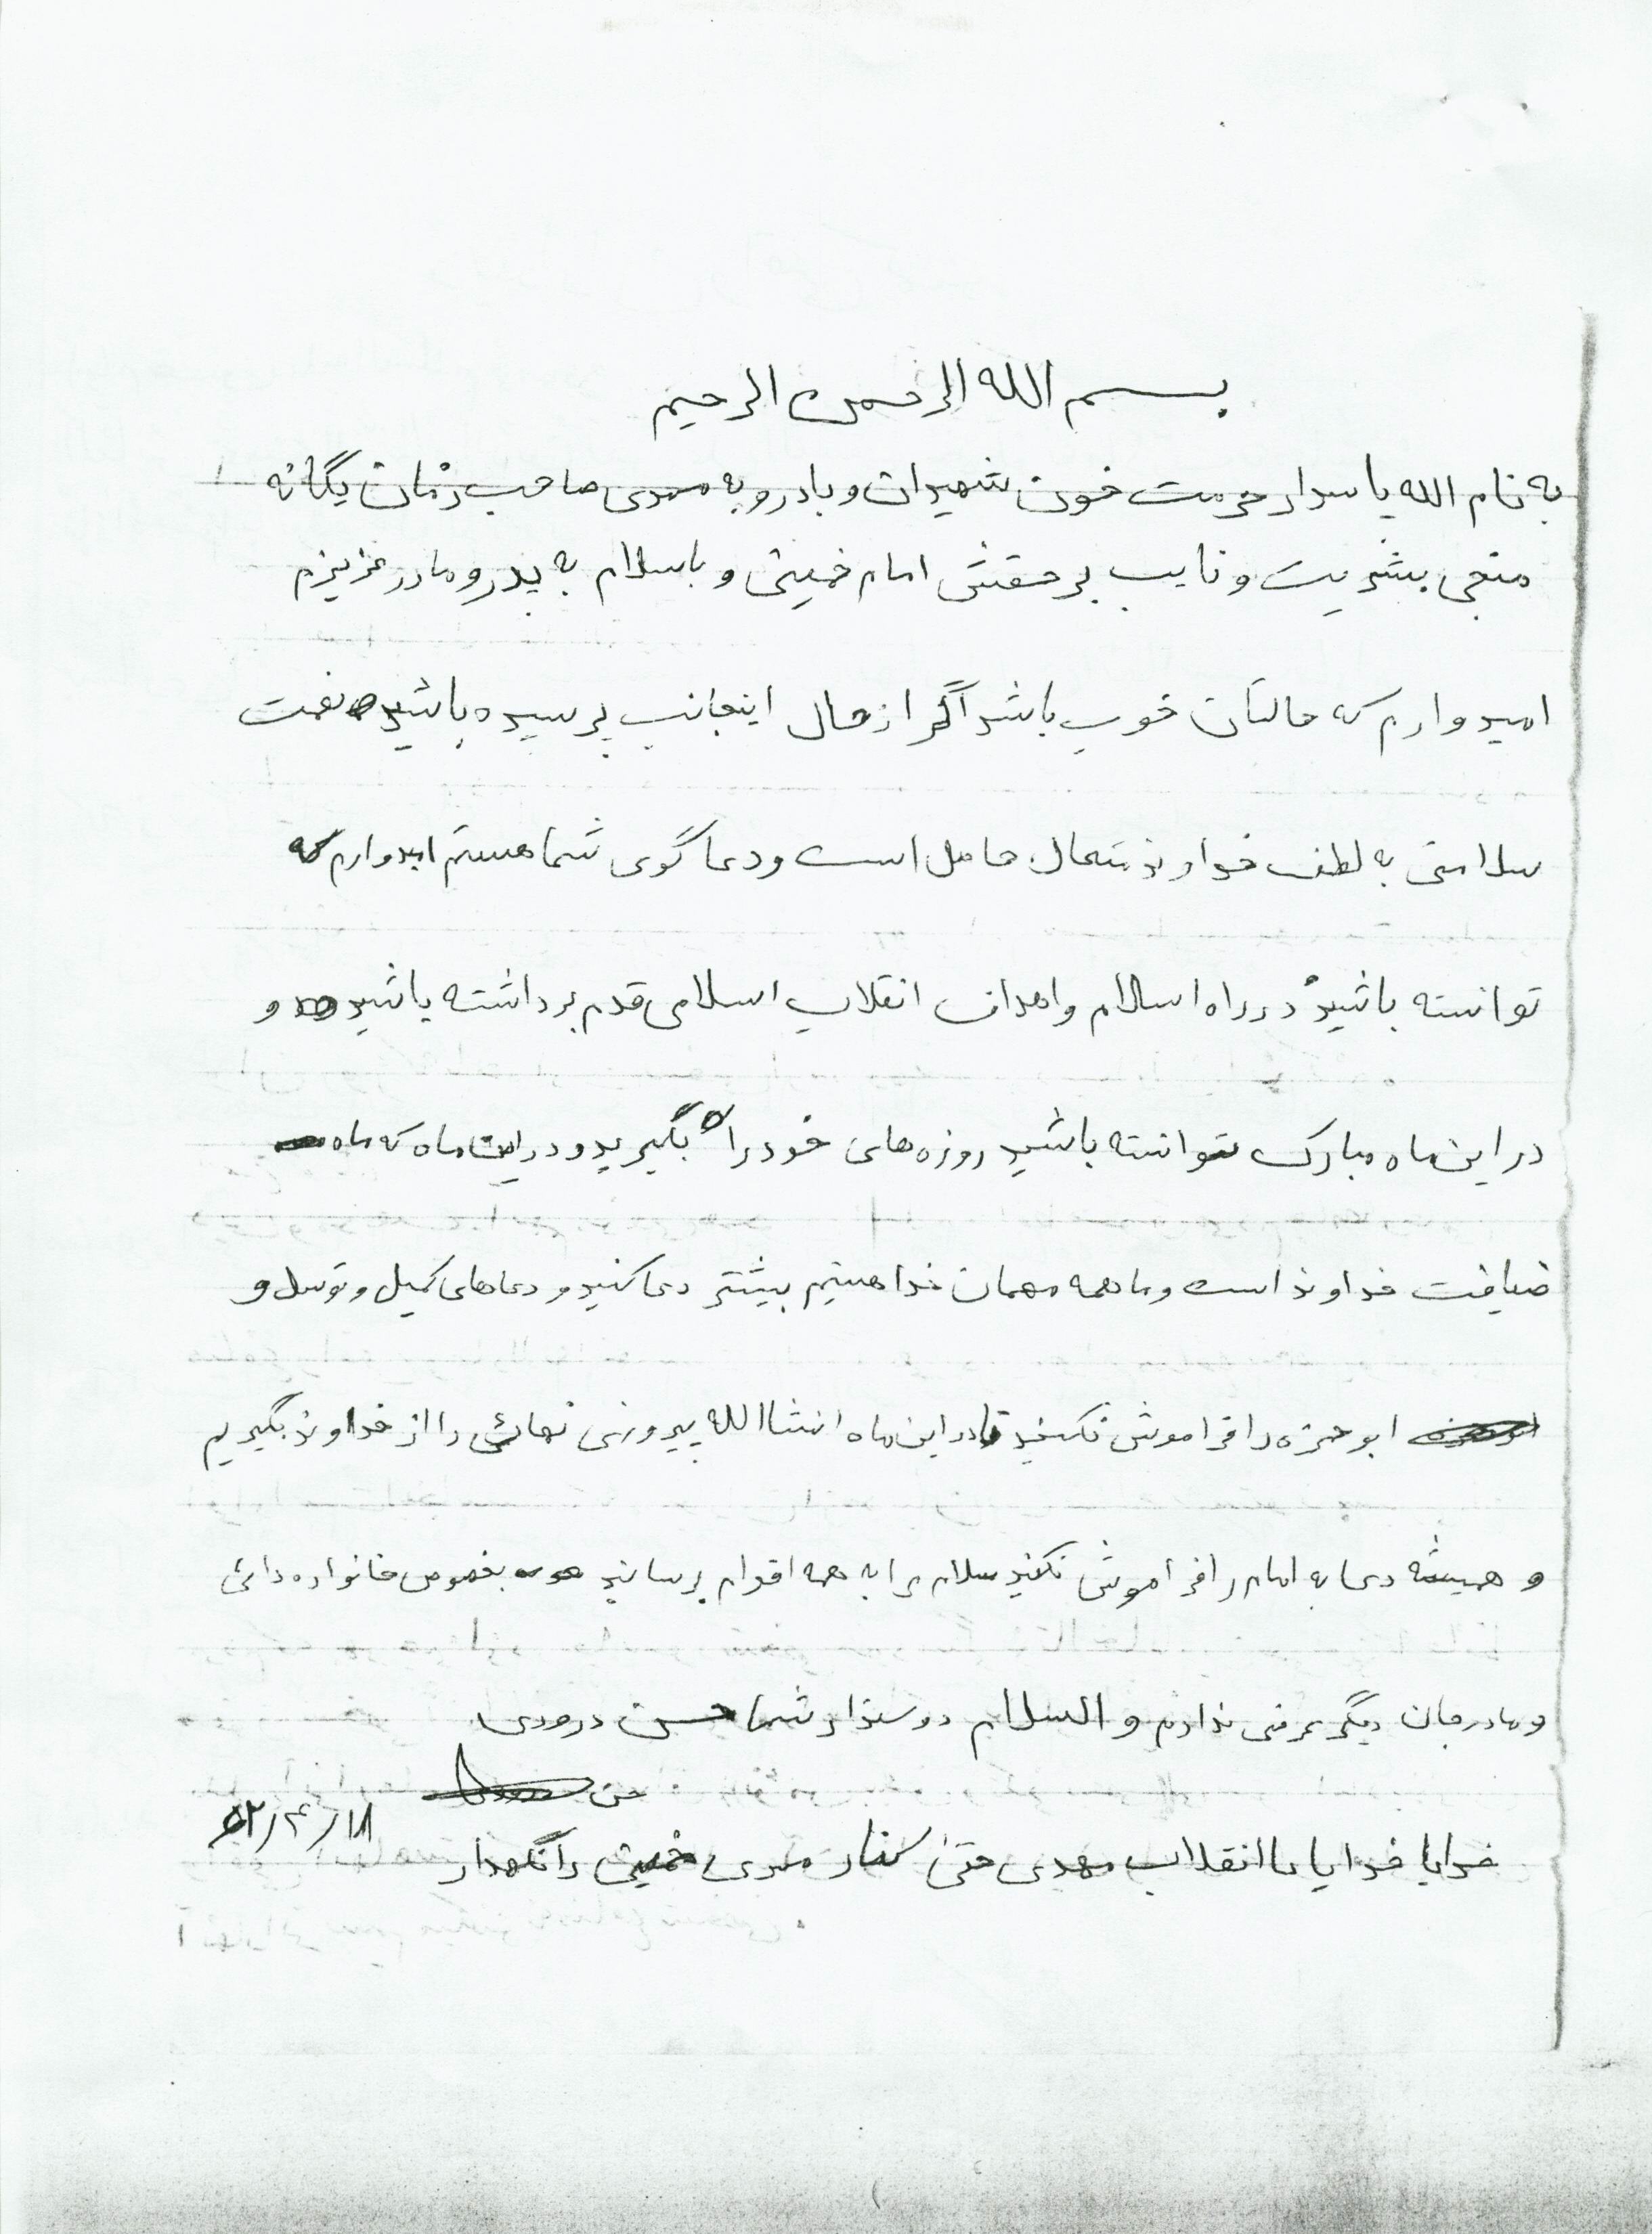 بسم الله الرحمن الرحیم
به نام الله پاسدار حرمت خون شهیدان و بادرود به مهدی صاحب زمان یگانه
منجی بشریت و نایب برحقش امام خمینی و باسلام به پدر و مادر عزیزم
امیدوارم که حالتان خوب باشد اگر از حال اینجانب پرسیده باشید نعمت
سلامتی به لطف خداوند متعال حاصل است و دعاگوی شما هستم امیدوارم که
توانسته باشید در راه اسلام و اهداف انقلاب اسلامی قدم برداشته باشید و
در این ماه مبارک توانسته باشید روزه های خود را بگیرید و در این ماه که ماه
ضیافت خداوند است و ما همه مهمان خدا هستیم بیشتر دعا کنید و دعاهای کمیل و توسل و
ابوحمزه را فراموش نکنید تا در این ماه انشاالله پیروزی نهائی را از خداوند بگیریم
و همیشه دعا به امام را فراموش نکنید سلام مرا به همه اقوام برسانید بخصوص خانواده دائی
و مادرجان دیگر عرضی ندارم والسلام دوستدار شما حسن درودی
حسن
۶۲/۴/۱۸
خدایا خدایا تا انقلاب مهدی حتی کنار مهدی خمینی را نگهدار